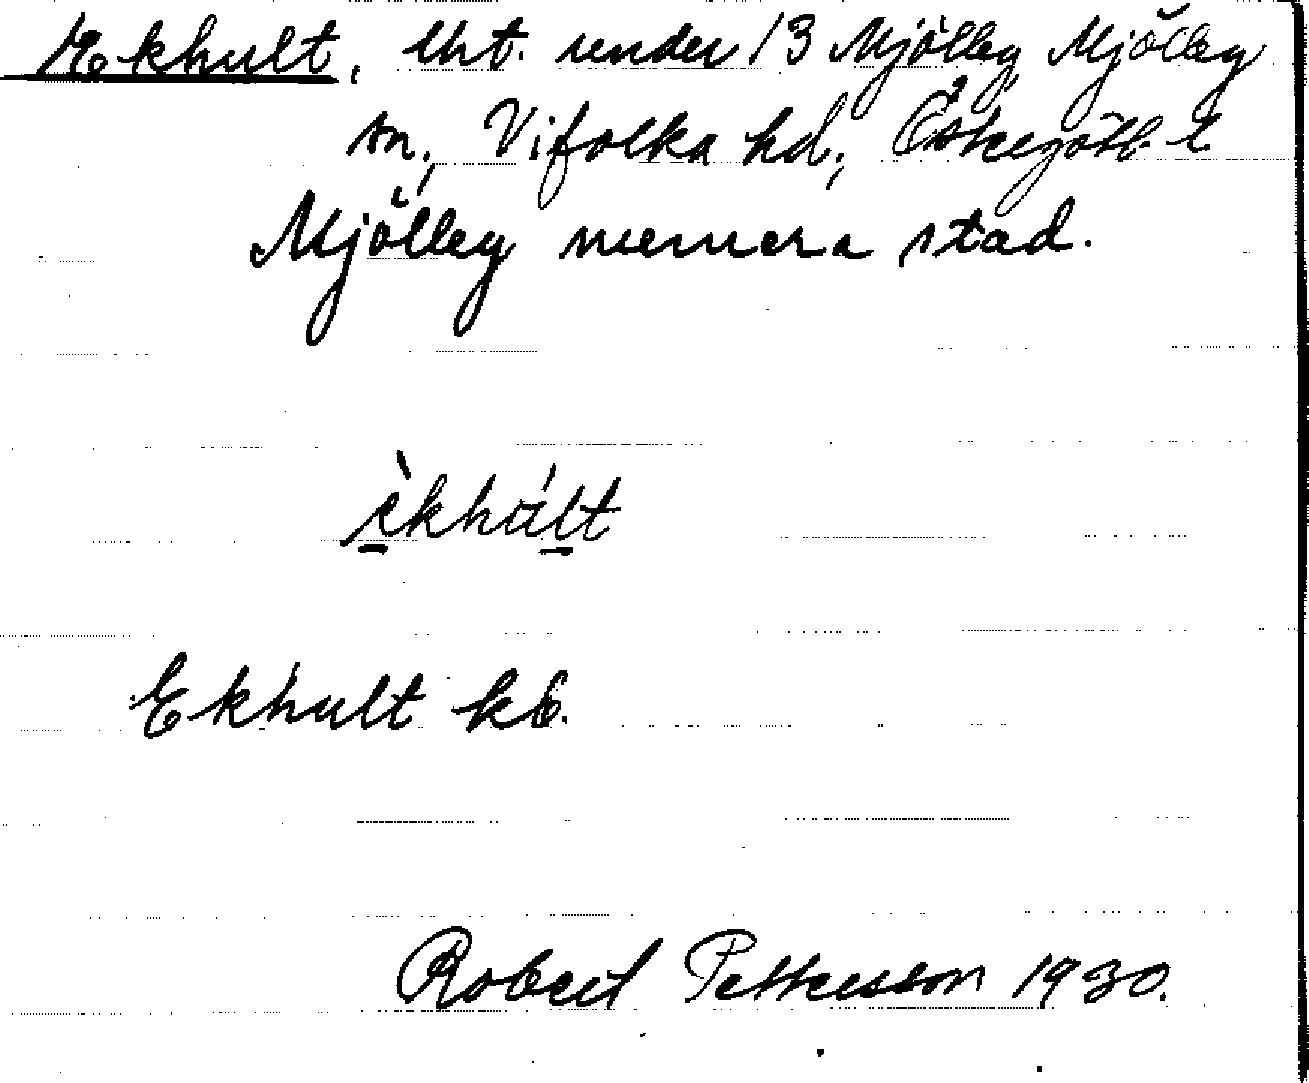 Ekhult, lht. under 13 Mjölby Mjölby
sn, Vifolka hd, Östergötl. l
Mjölby numera stad.
èkhúlt
Ekhult kb.
Robert Pettersson 1930.